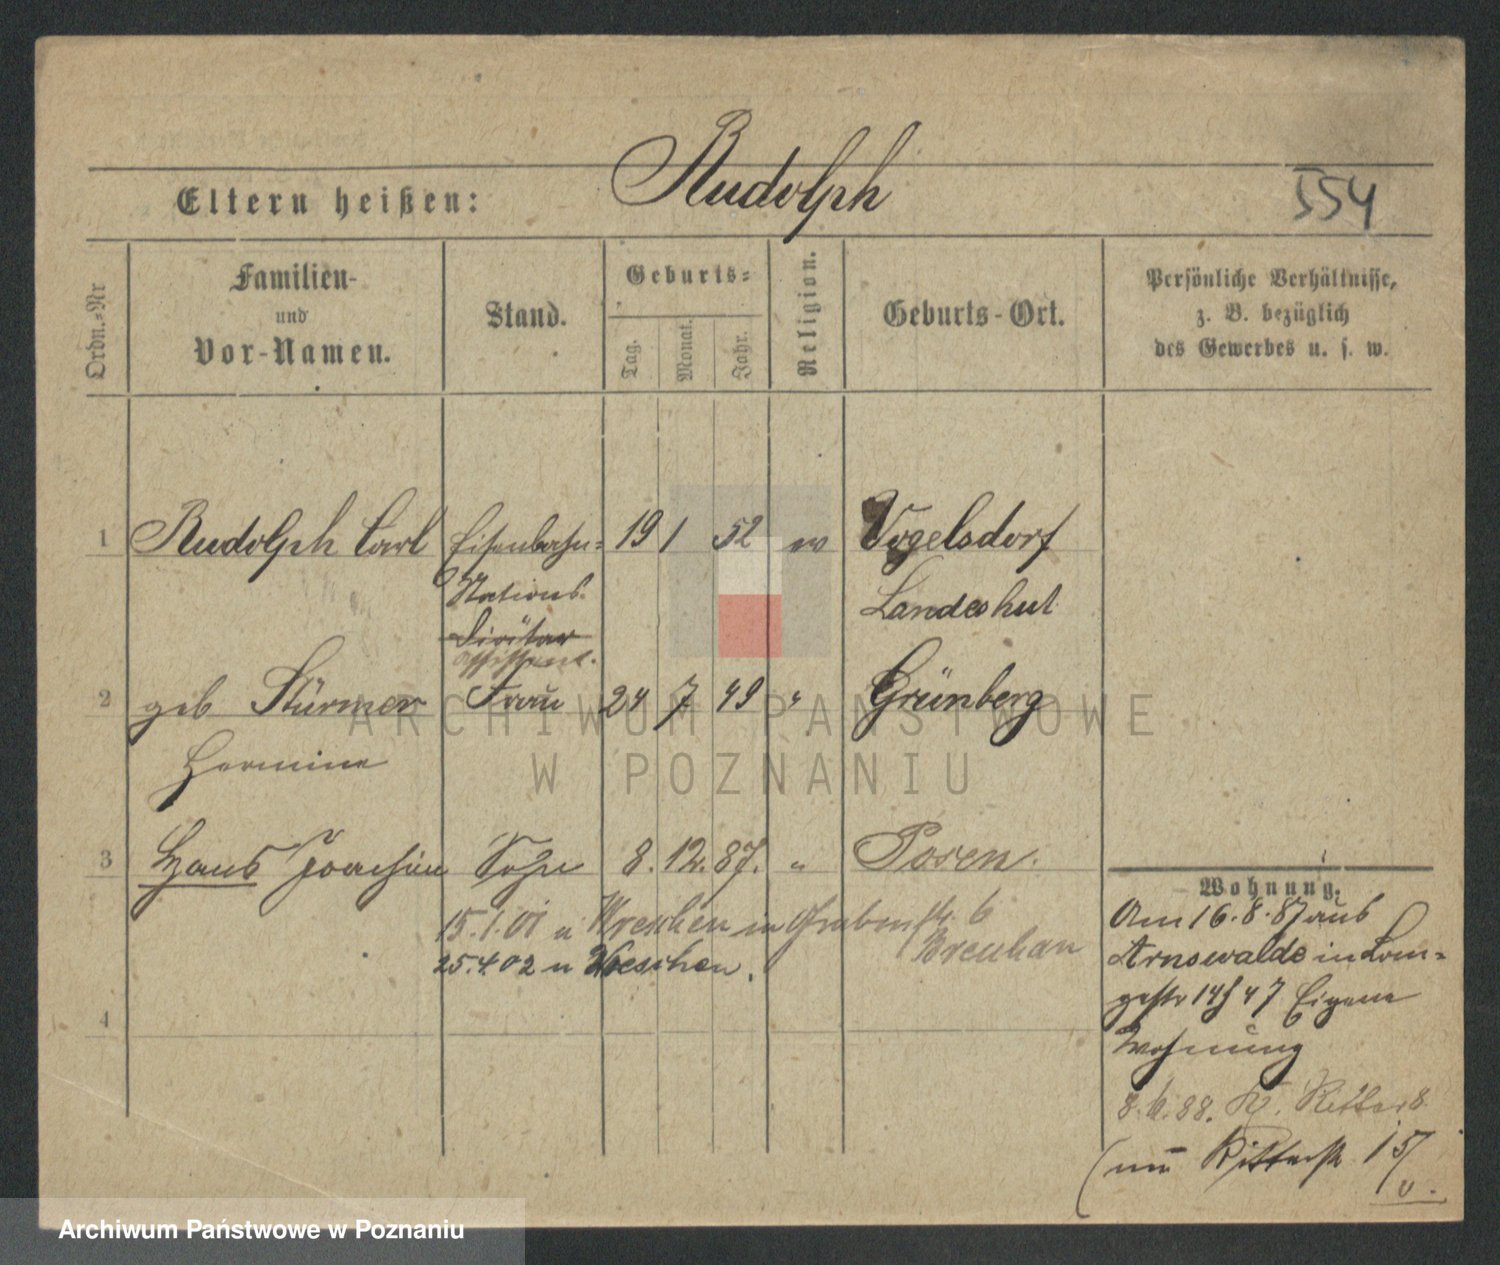 Rudolph
Eltern heißen:
554
Ordn.-Nr
Familien-
und
Vor-Namen.
Stand.
Geburts-
Tag.
Monat.
Jahr.
Religion.
Geburts-Ort.
Persönliche Verhältnisse,
z. B. bezüglich
des Gewerbes u. s. w.
1 Rudolph Carl Eisenbahn- 19 1 52 ev Vogelsdorf
Stations- Landeshut
Diätar
Assistent.
2 geb Stürmer Frau 24 7 49 " Grünberg
Hermine
3 Hans Joachim Sohn 8. 12. 87. " Posen.
15.1.01 n Wreschen in Grabenstr. 6
25.4.02 n Weschen.
4
Wohnung.
Am 16.8.87 aus
Arnswalde in
14 Eigene
Wohnung
8.6.88. Ritterst
Ritterstr 15
ARCHIWUM PAŃSTWOWE
W POZNANIU
Archiwum Państwowe w Poznaniu